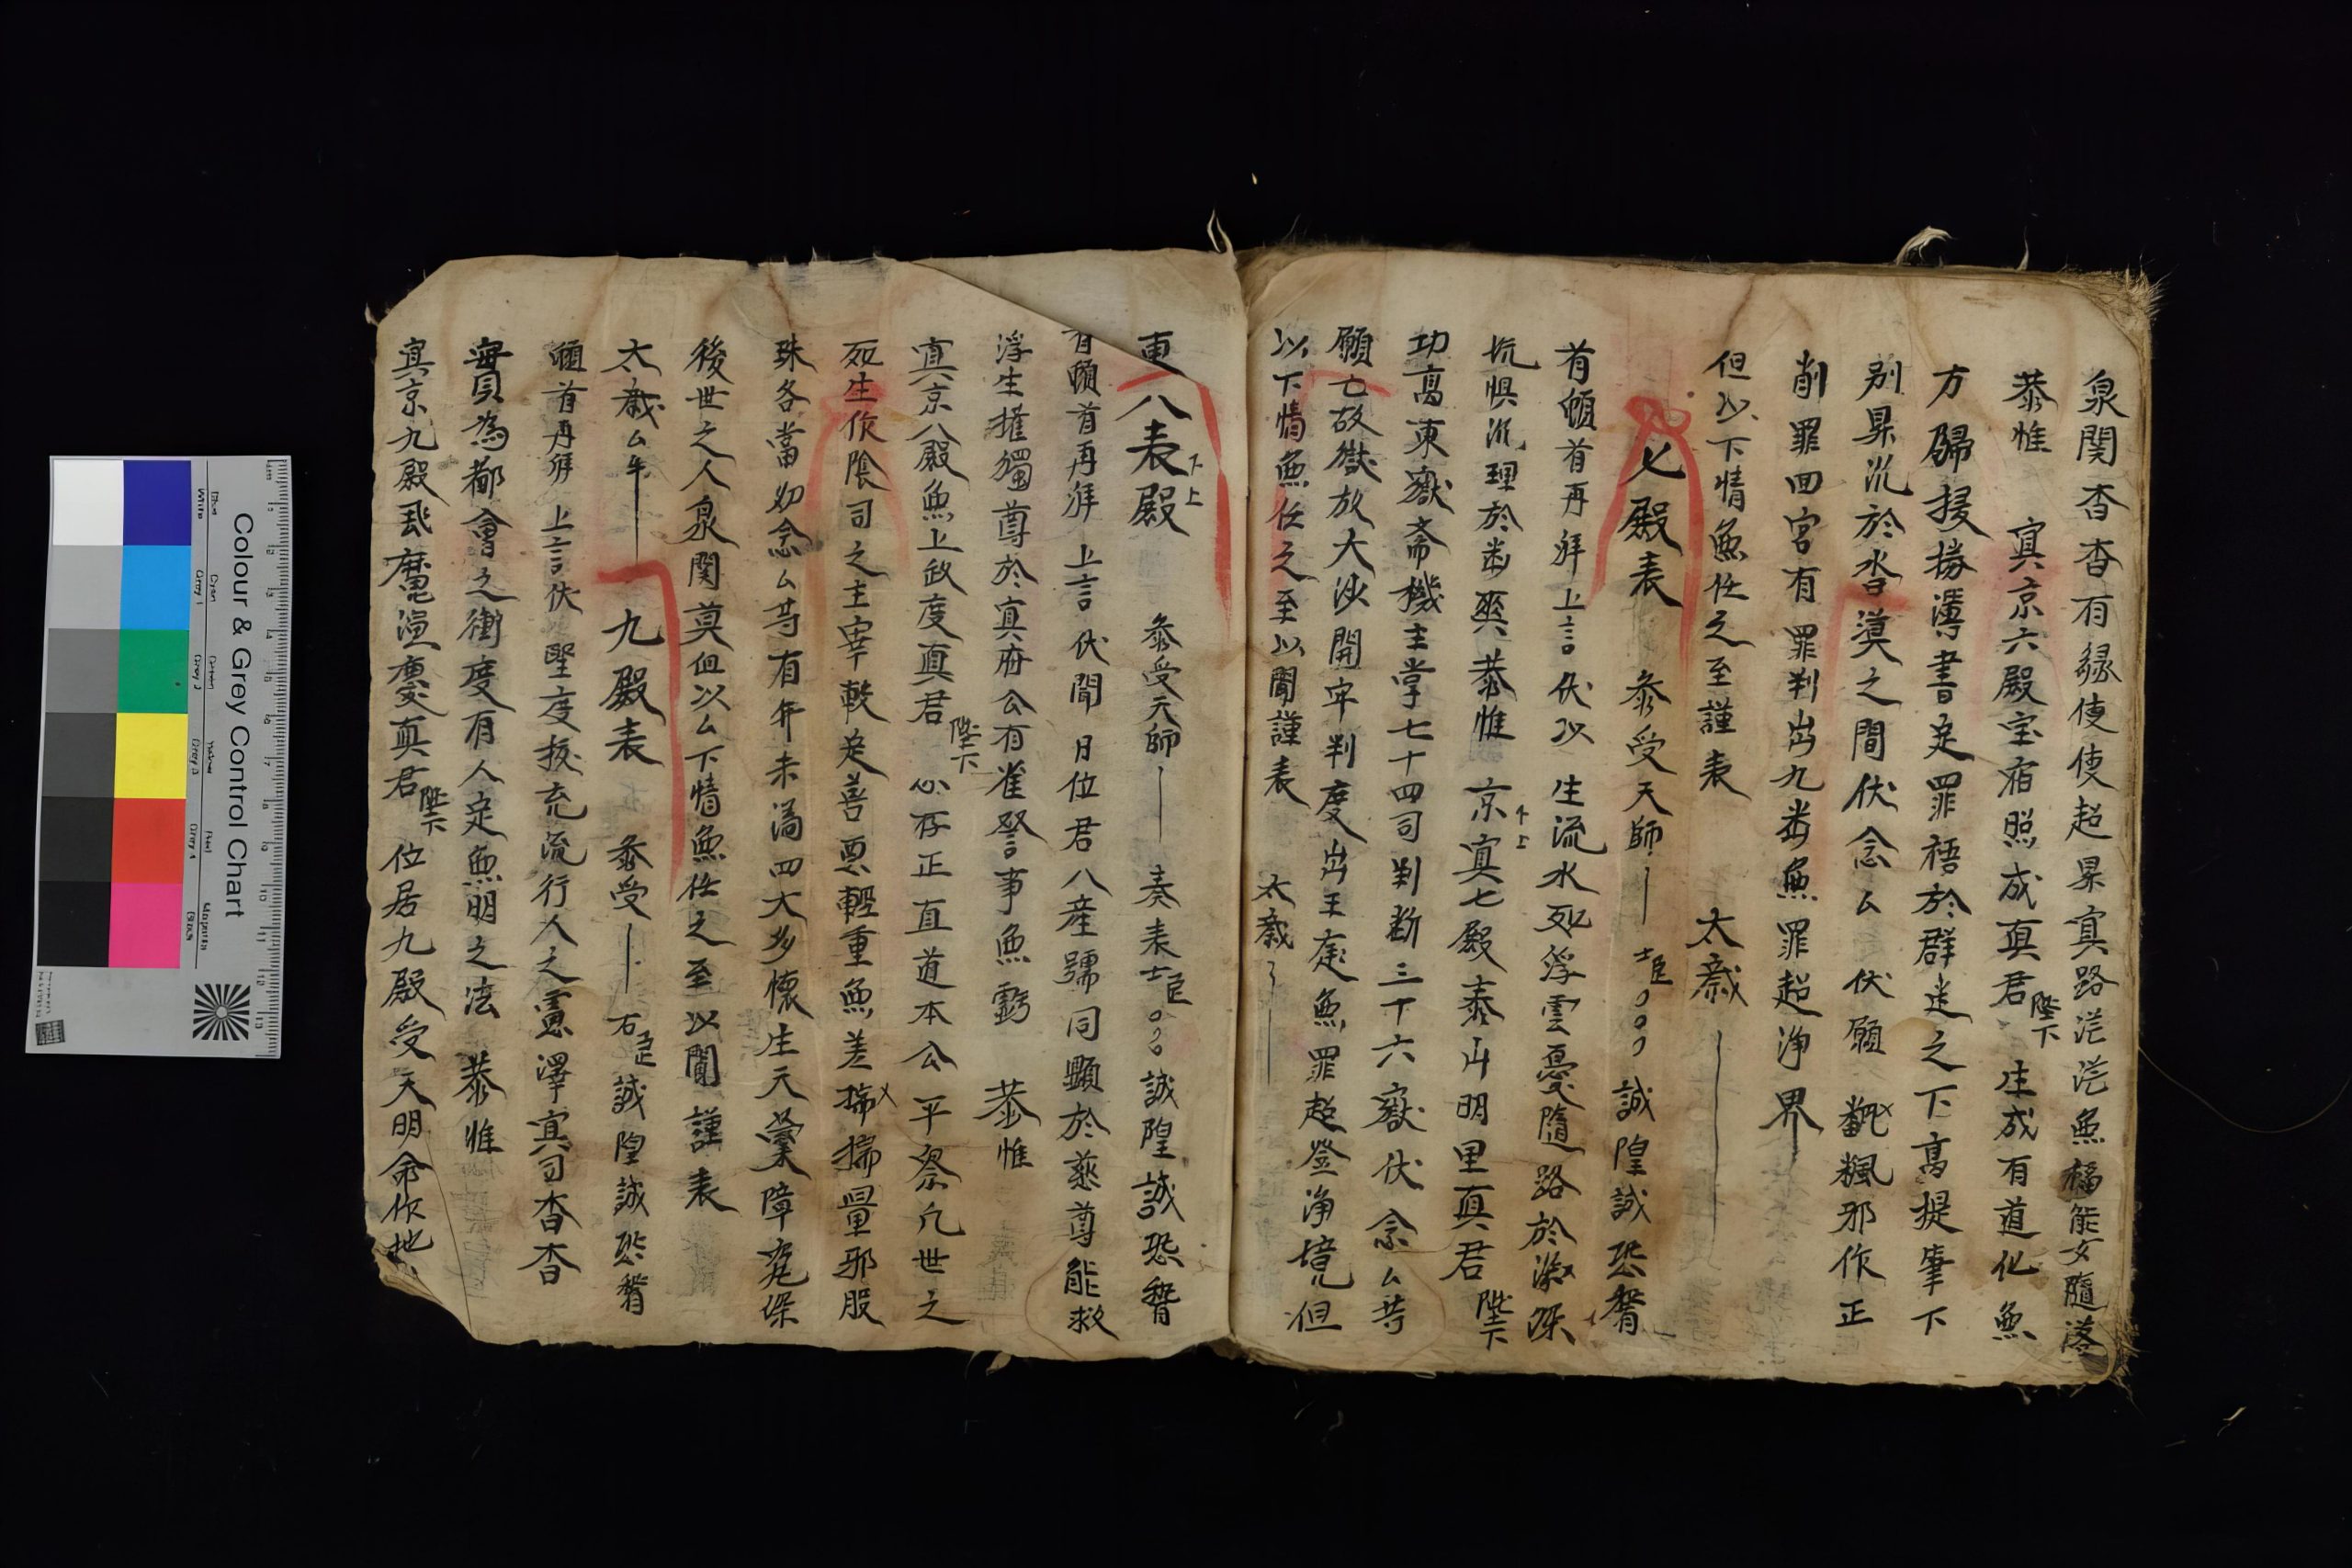 泉関杳杳有緣使使超昇寘路茫茫魚橋能文隨落
恭惟 寘京六殿宝宿照成真君陛下 生成有道化魚
方歸援榜薄書定罪禧於群迷之下高提筆下
别昇沉於杳漠之間伏念厶 伏願 飜邪作正
削罪回宮有罪判出九泉魚罪超淨界
但以下情魚任之至謹表 太歲
七殿表 叅受天師 臣 誠惶誠恐稽
首頓首再拜上言伏以 生流水死浮雲憂隨路於深
坑惧沉理於 恭惟 京寘七殿泰山明里真君陛下
功高東嶽齋機主掌七十四司判断三十六嶽伏念厶等
願亡故嶽放大沙開牢判度出王庭魚罪超登淨境但
以下情魚任之至以聞謹表 太歲
東八表殿 叅受天師 奏表士臣 誠惶誠恐稽
首頓首再拜 上言 伏聞 日位君八産號同顯於慈尊能救
浮生摧獨尊於寘府公有雀譽事魚虧 恭惟
寘京八殿魚上政度真君陛下 心存正直道本公平察凡世之
死生作陰司之主宰較定善惡輕重魚差揣量邪股
珠各當劝念厶等有年未滿四大多懷生天業障寃深
後世之人泉関莫但以厶下情魚任之至以聞謹表
太歲厶年 九殿表 叅受 臣 誠惶誠恐稽
頓首再拜 上言伏 聖度按充流行人之靈澤寘司杳杳
實為都會之衝度有人定魚明之法 恭惟
寘京九殿 真君陛下 位居九殿受天明命作地